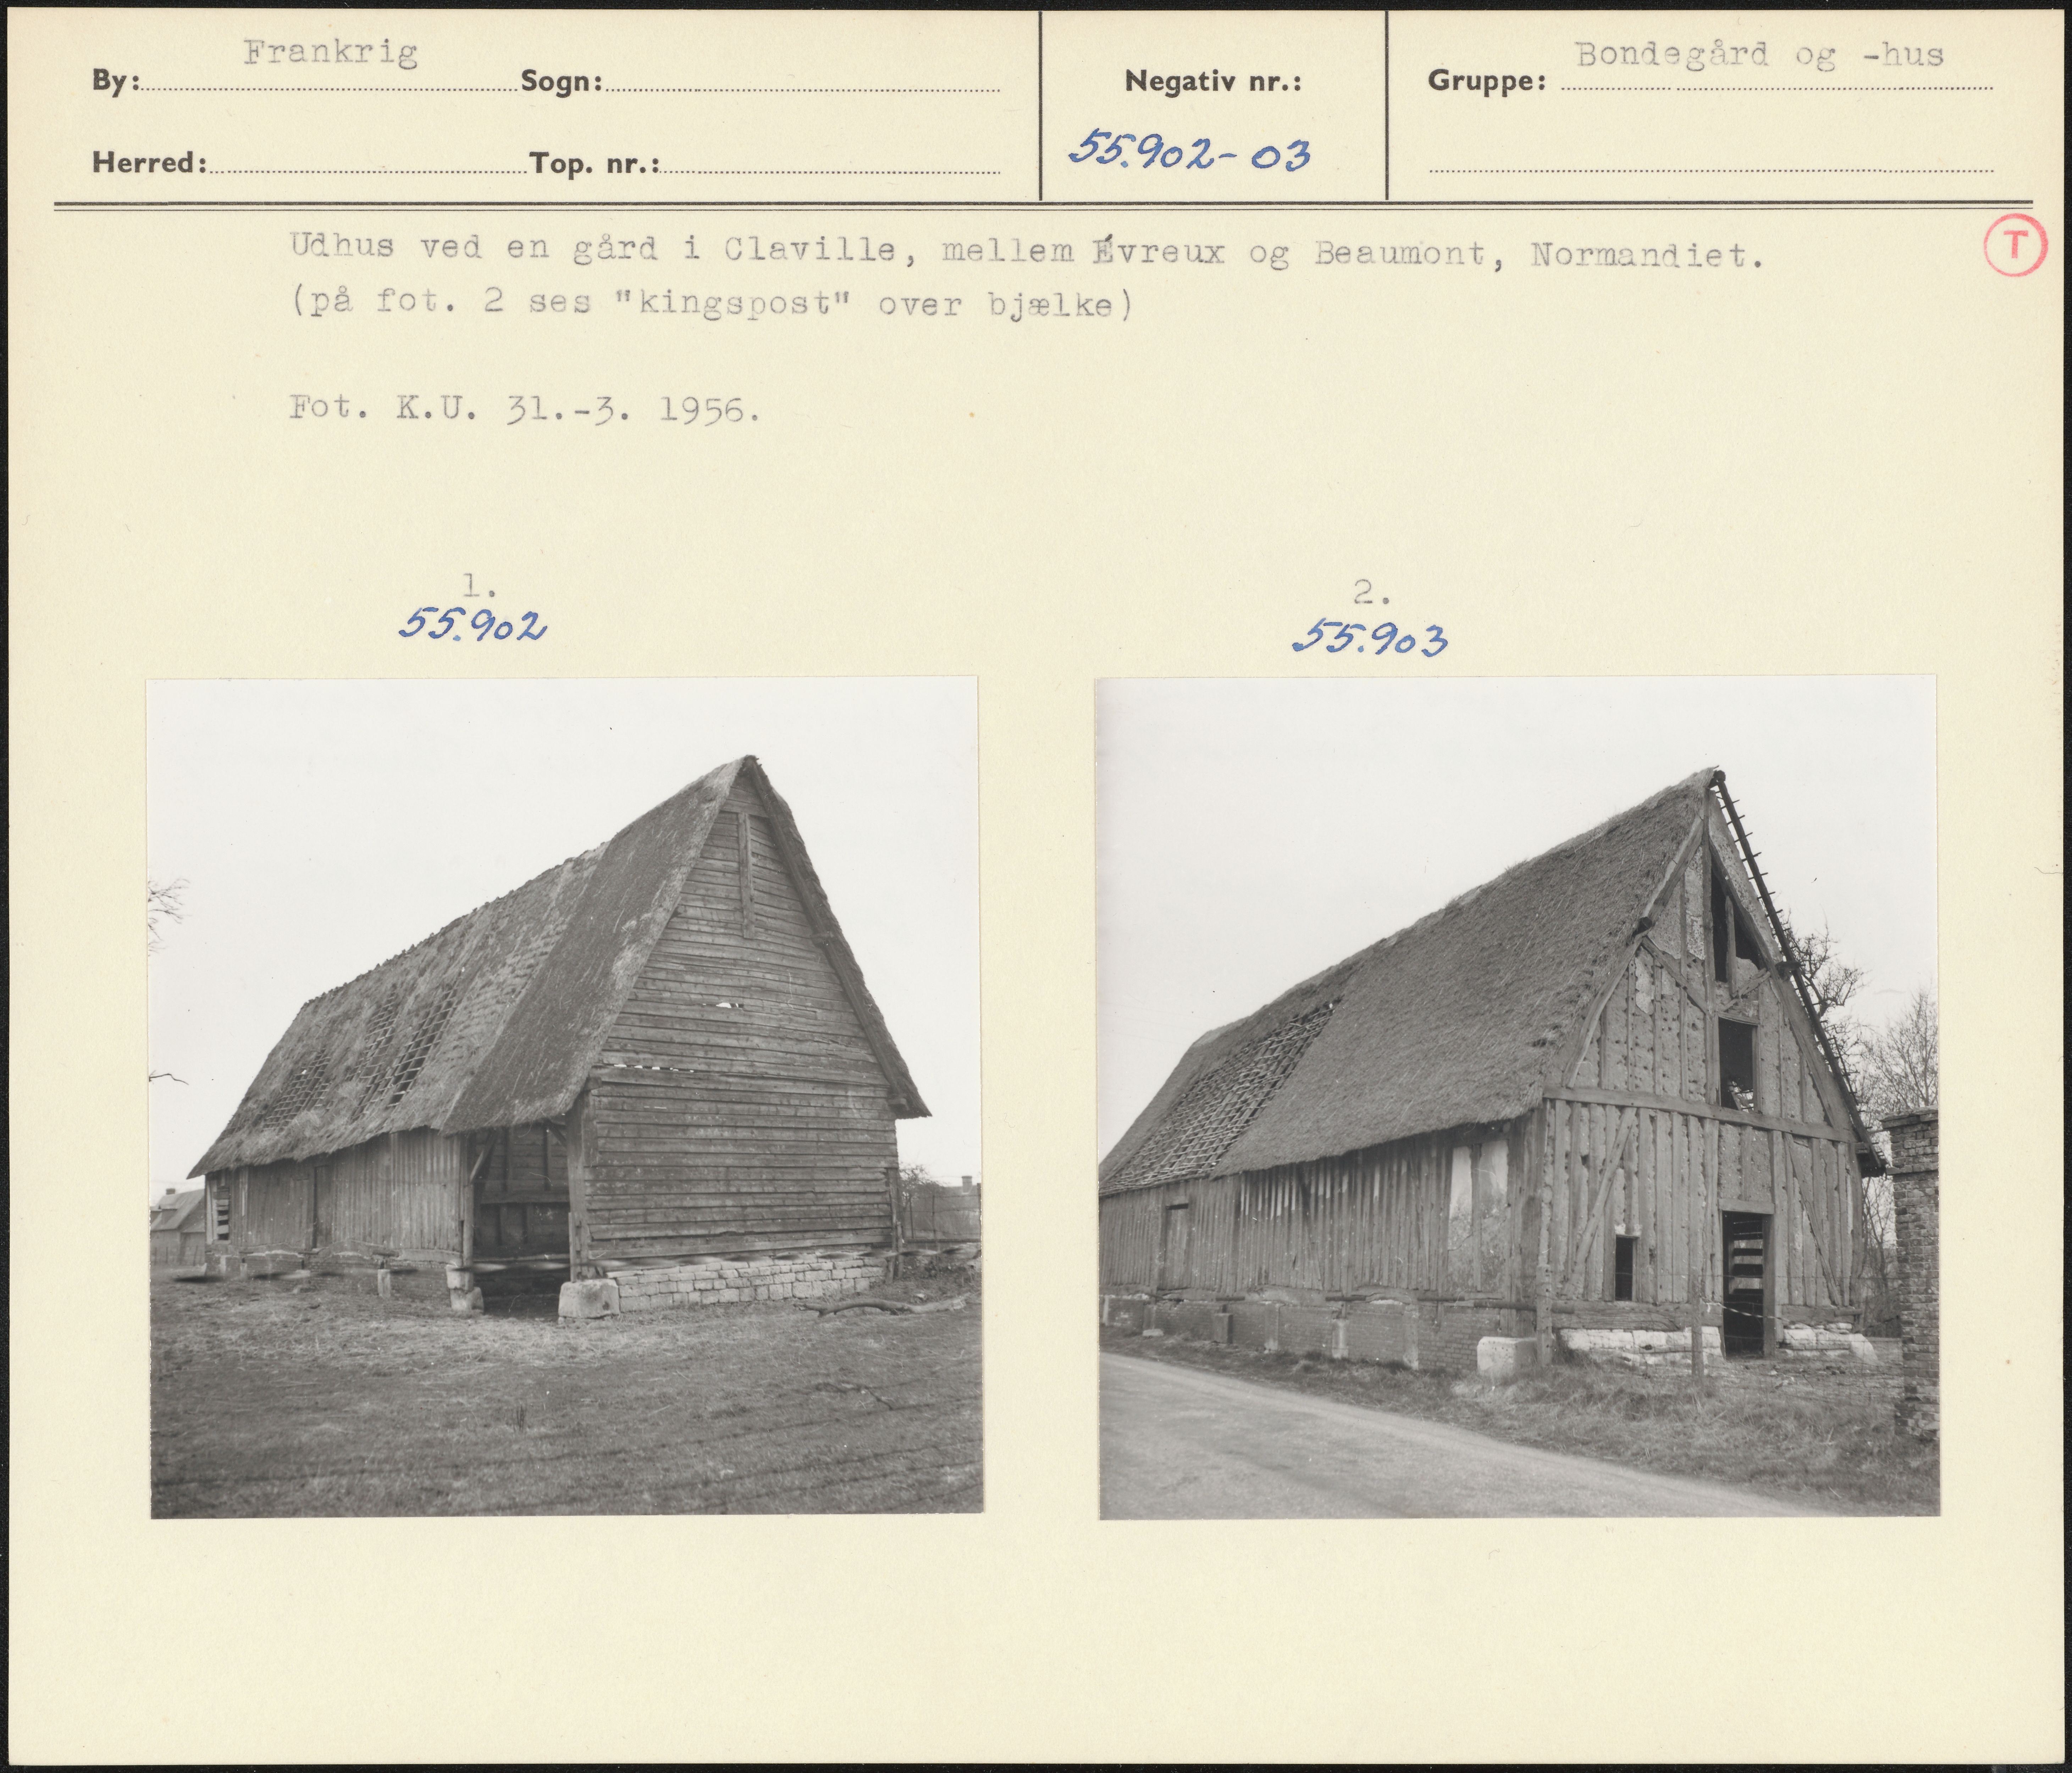 Frankrig
By: Sogn:
Herred: Top. nr.:
Negativ nr.:
55.902-03
Bondegård og -hus
Gruppe:
T
Udhus ved en gård i Claville, mellem Évreux og Beaumont, Normandiet.
(på fot. 2 ses "kingspost" over bjælke)
Fot. K.U. 31.-3. 1956.
1.
55.902
2.
55.903